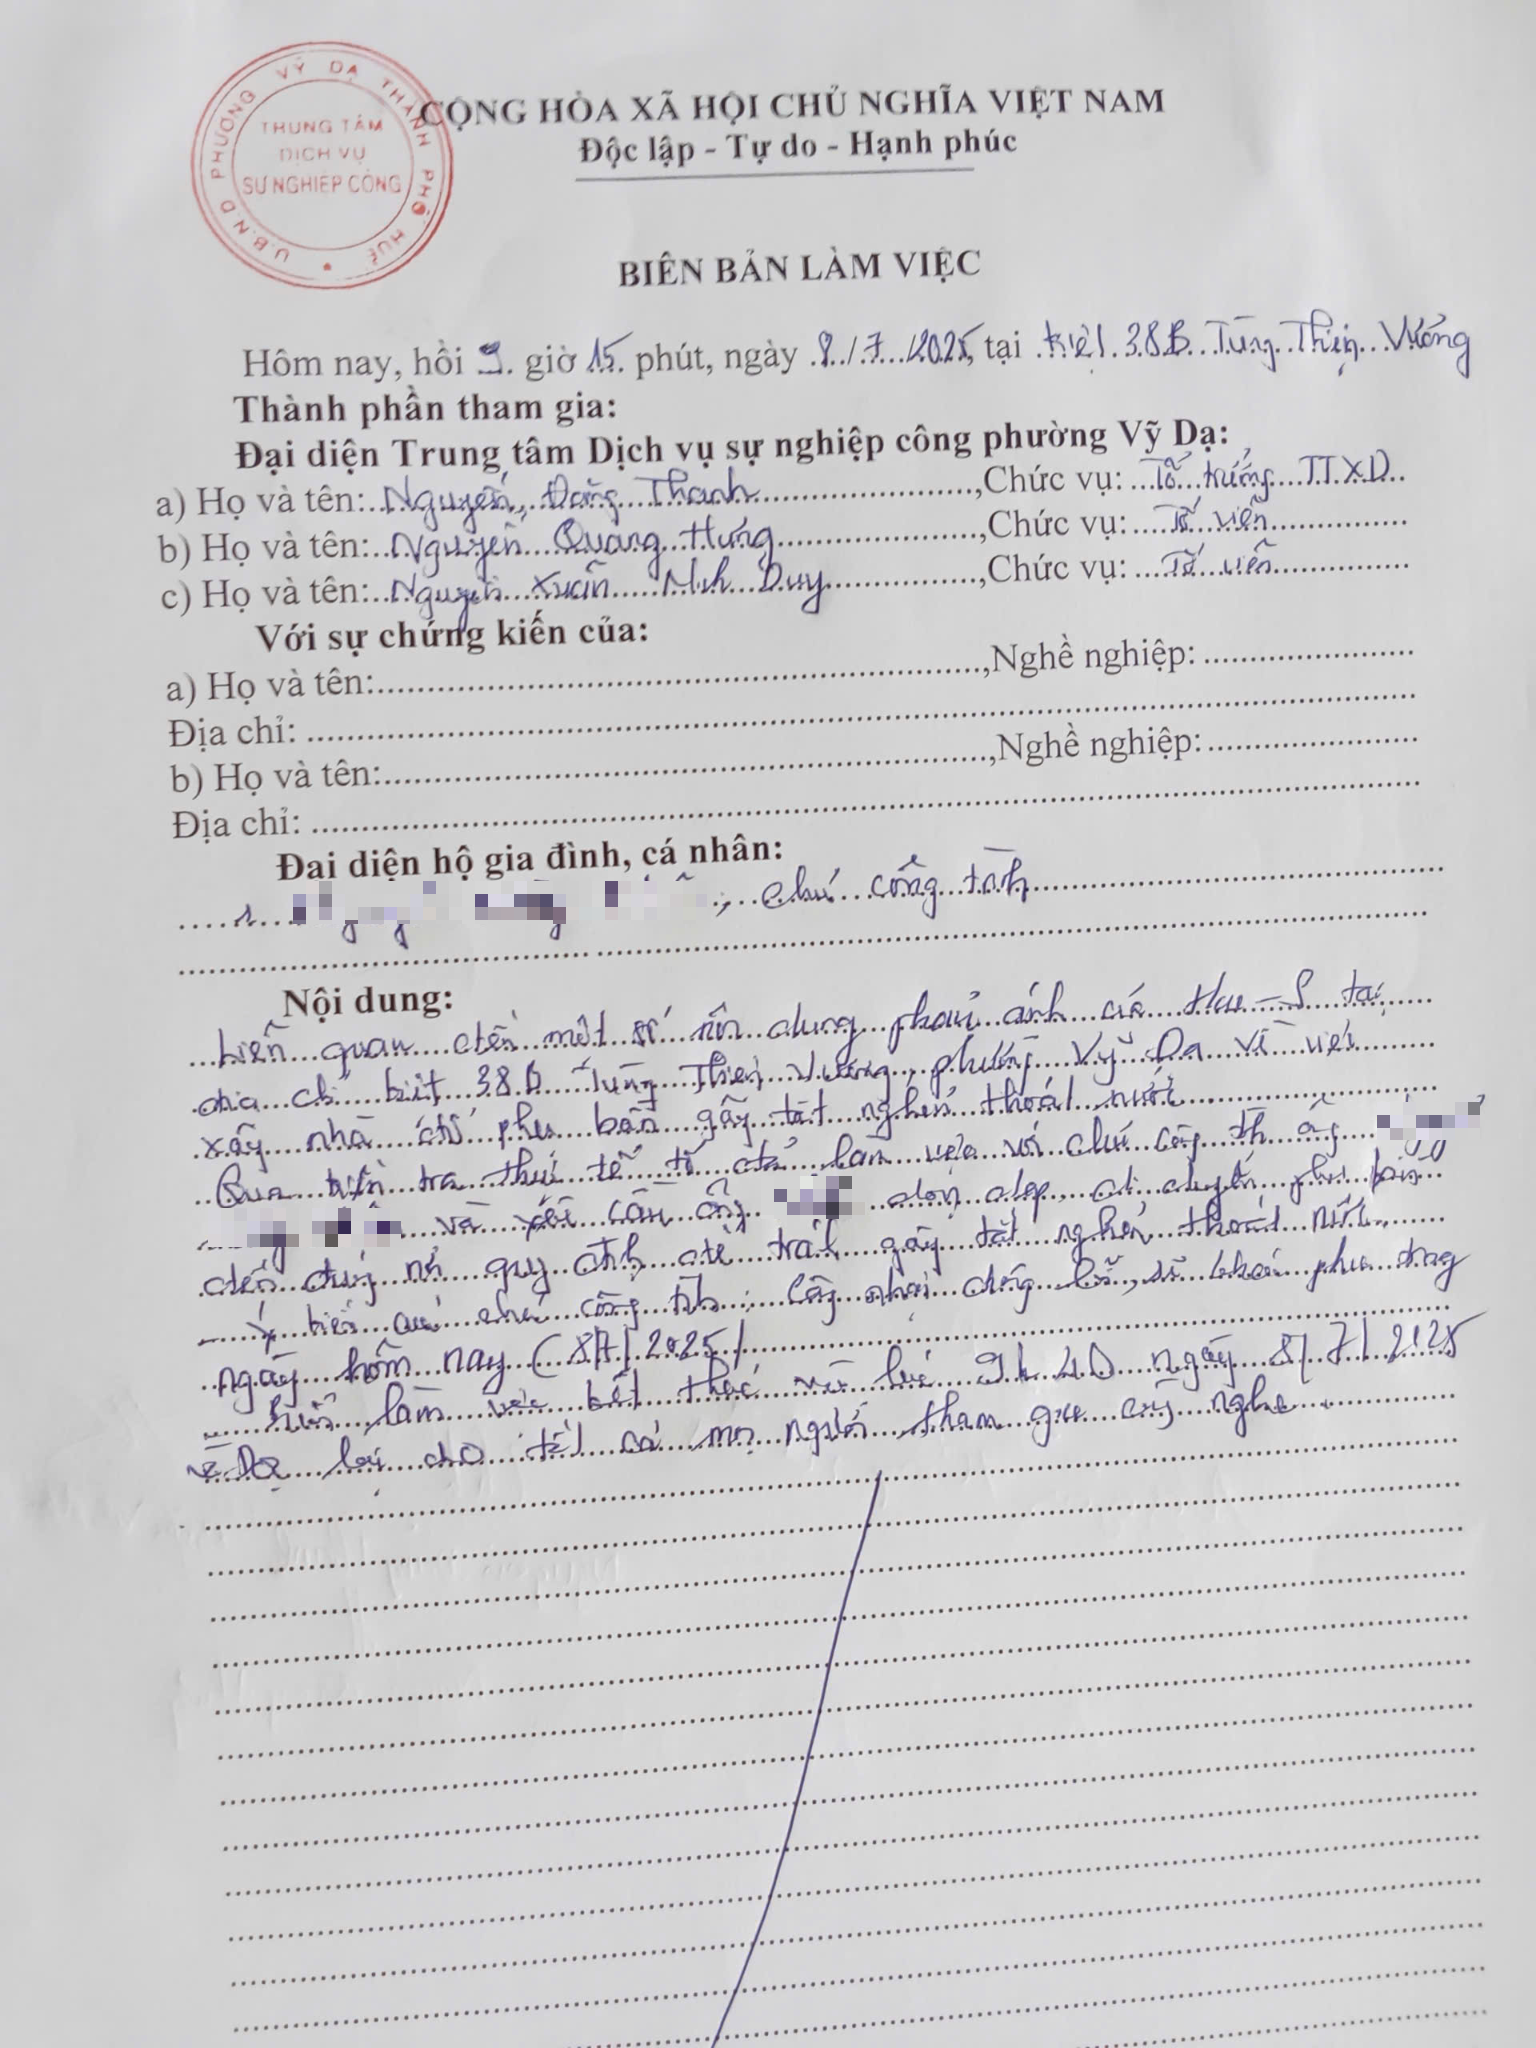 U.B.N.D PHƯỜNG VỸ DẠ THÀNH PHỐ HUẾ
TRUNG TÂM
DỊCH VỤ
SỰ NGHIỆP CÔNG
CỘNG HÒA XÃ HỘI CHỦ NGHĨA VIỆT NAM
Độc lập - Tự do - Hạnh phúc
BIÊN BẢN LÀM VIỆC
Hôm nay, hồi 9 giờ 15 phút, ngày 8/7/2025, tại kiệt 38B Tùng Thiện Vương
Thành phần tham gia:
Đại diện Trung tâm Dịch vụ sự nghiệp công phường Vỹ Dạ:
a) Họ và tên: Nguyễn Đăng Thanh, Chức vụ: Tổ trưởng TTXD
b) Họ và tên: Nguyễn Quang Hưng, Chức vụ: Tổ viên
c) Họ và tên: Nguyễn Xuân Minh Duy, Chức vụ: Tổ viên
Với sự chứng kiến của:
a) Họ và tên:, Nghề nghiệp:
Địa chỉ:
b) Họ và tên:, Nghề nghiệp:
Địa chỉ:
Đại diện hộ gia đình, cá nhân:
1, chủ công trình
Nội dung:
Liên quan đến một số nội dung phản ánh của Hue-S tại
địa chỉ kiệt 38B Tùng Thiện Vương, phường Vỹ Dạ về việc
xây nhà để phụ bẩn gây tắt nghẽn thoát nước
Qua kiểm tra thực tế tổ đã làm việc với chủ công trình ông
và yêu cầu ông dọn dẹp, di chuyển phụ bẩn
đến đúng nơi quy định để tránh gây tắt nghẽn thoát nước
- Ý kiến của chủ công trình: sẽ khơi phụ trong
ngày hôm nay (8/7/2025)
làm việc kết thúc vào lúc 9h40 ngày 8/7/2025
và đọc lại cho tất cả mọi người tham gia cùng nghe